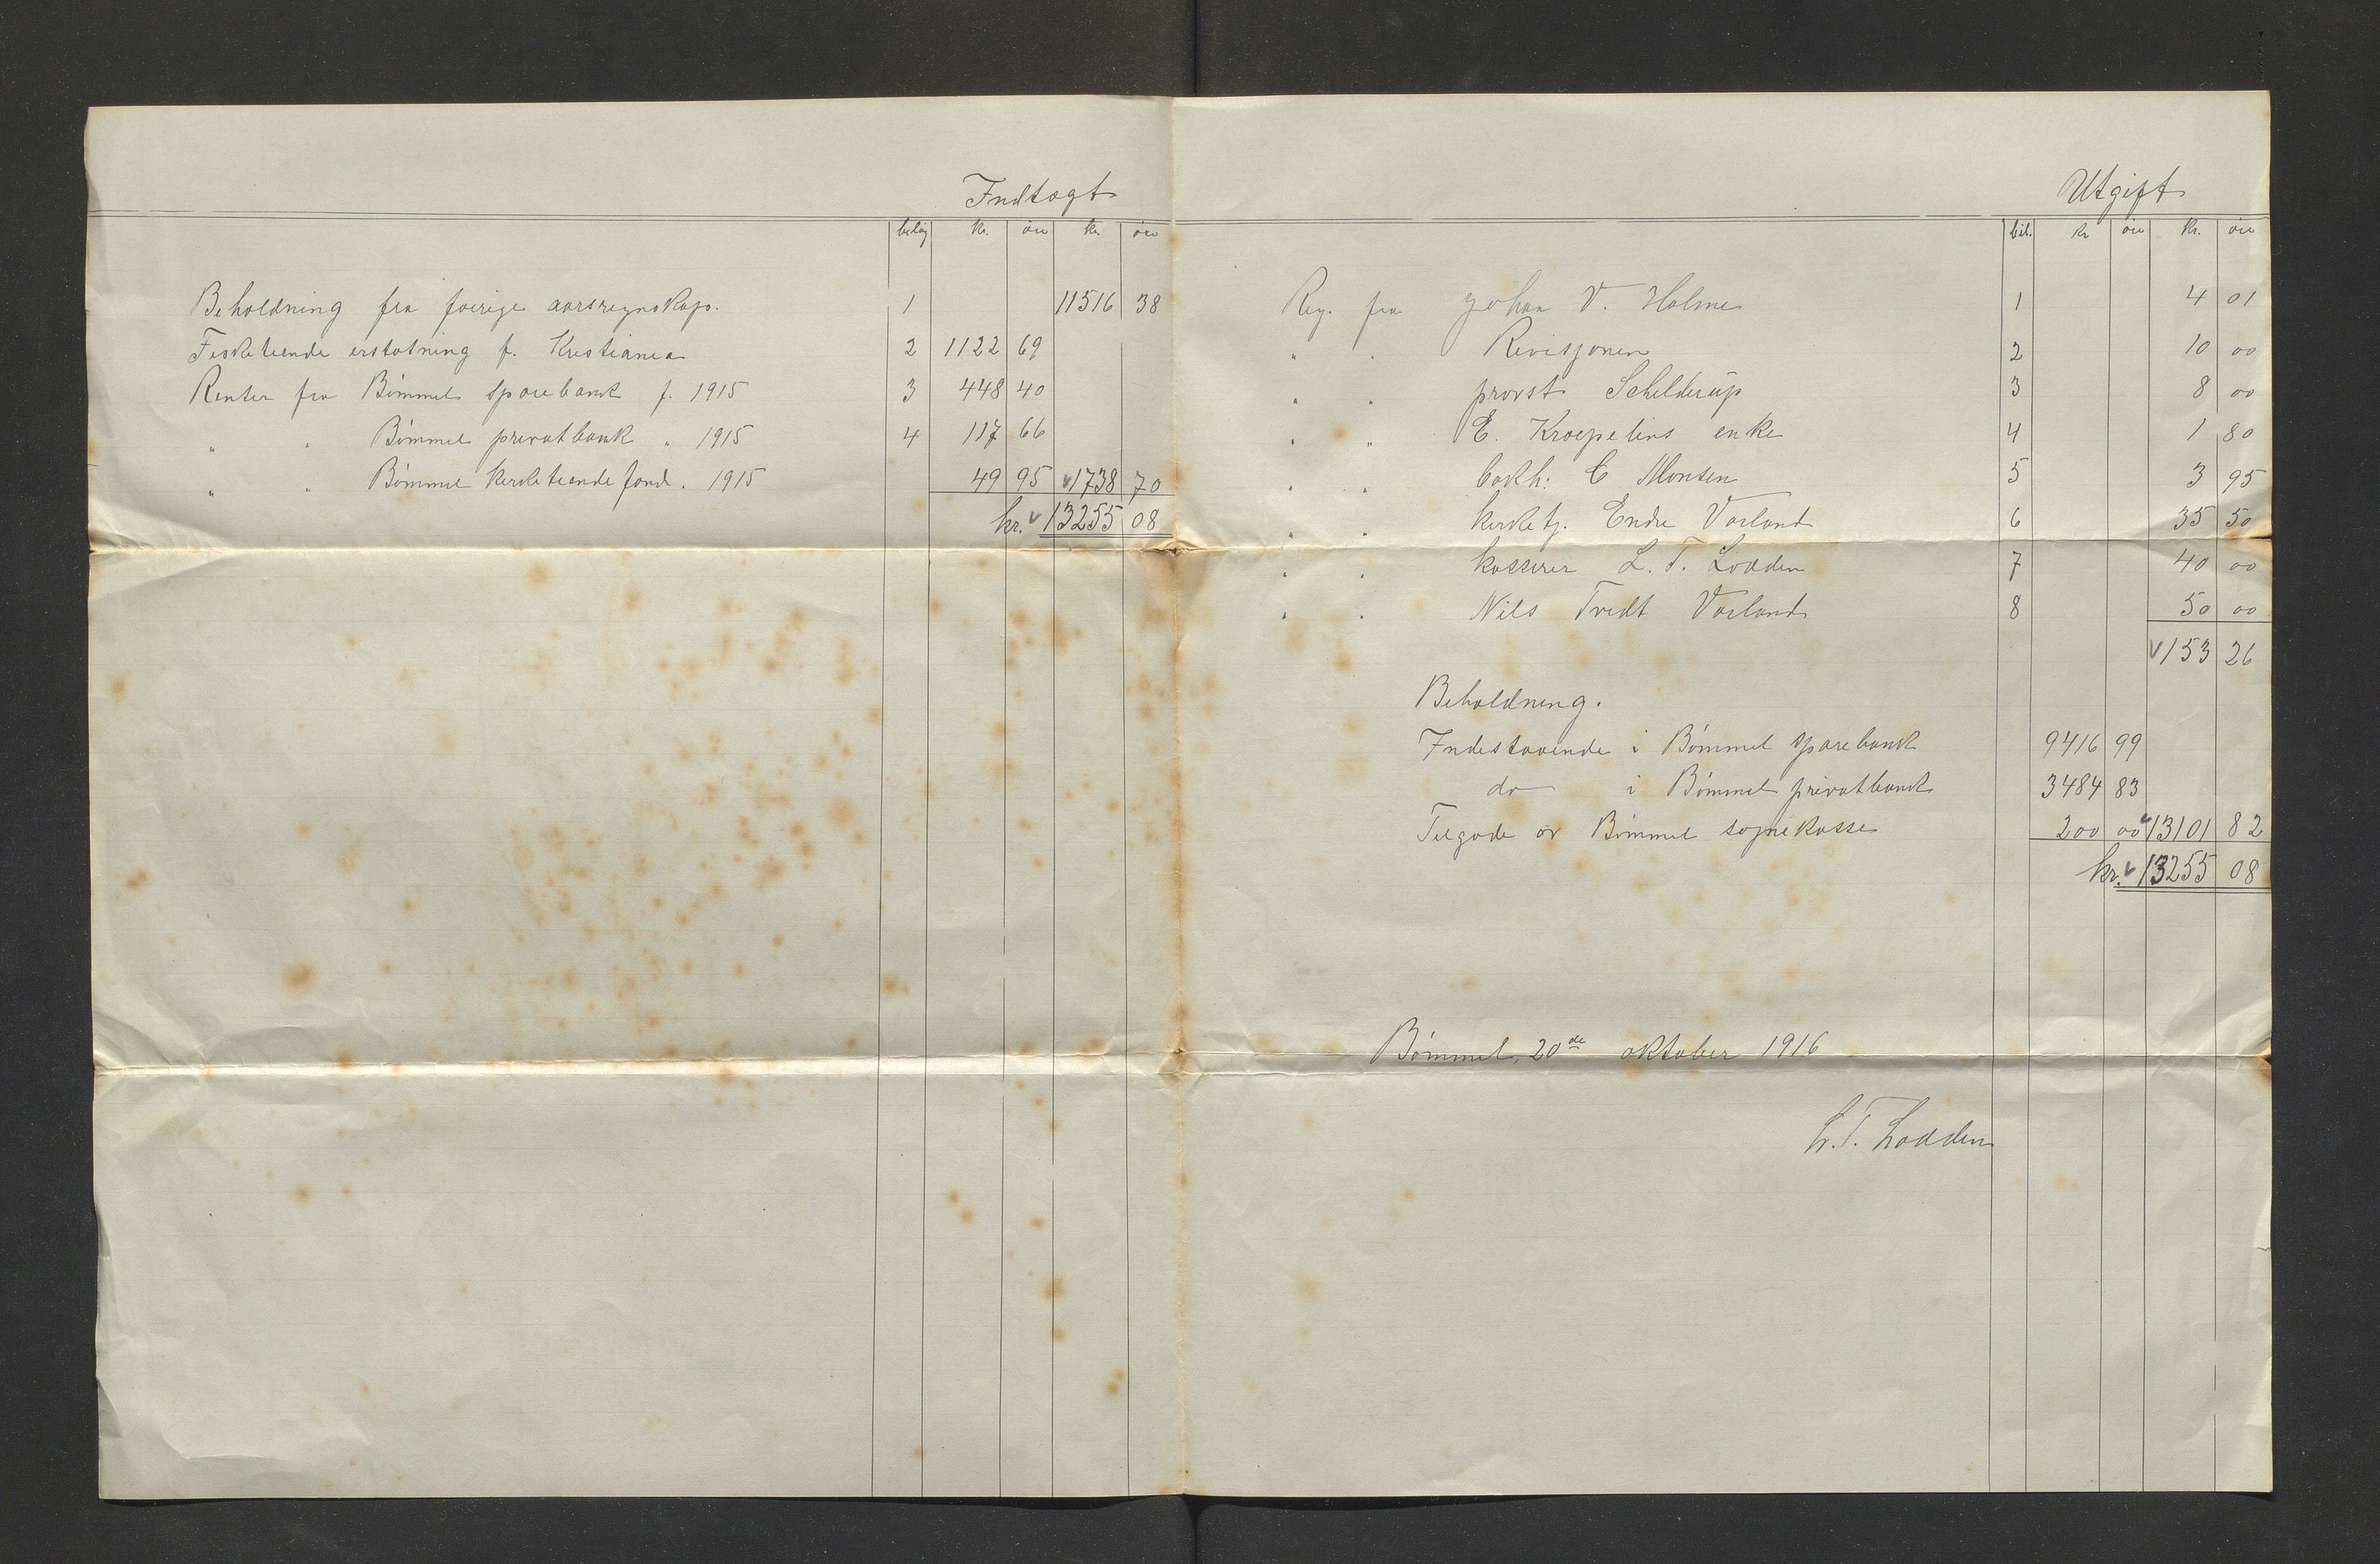 Indtægt
bilag kr. øre kr. øre
Beholdning fra forrige aarsregnskap. 1 11516 38
Fisketiende erstatning f. Kristiania 2 1122 69
Renter fra Bømmel sparebank f. 1915 3 448 40
" " Bømmel privatbank " 1915 4 117 66
" " Bømmel kirketiendefond. 1915 49 95 1738 70
kr. 13255 08
Utgift
bil. kr øre kr. øre
Reg. fra Johan V. Holme 1 4 01
" " Revisjonen 2 10 00
" " provst Schelderup 3 8 00
" " E. Kroepeliens enke 4 1 80
" " bokh: C Monsen 5 3 95
" " kirketj. Endre Vorland 6 35 50
" " kasserer L. T. Lodden 7 40 00
" " Nils Tvedt Vorland 8 50 00
153 26
Beholdning.
Indestaaende i Bømmel sparebank 9416 99
do i Bømmel privatbank 3484 83
Tilgode av Bømmel sognekasse 200 00 13101 82
kr. 13255 08
Bømmel, 20de oktober 1916
L. T. Lodden